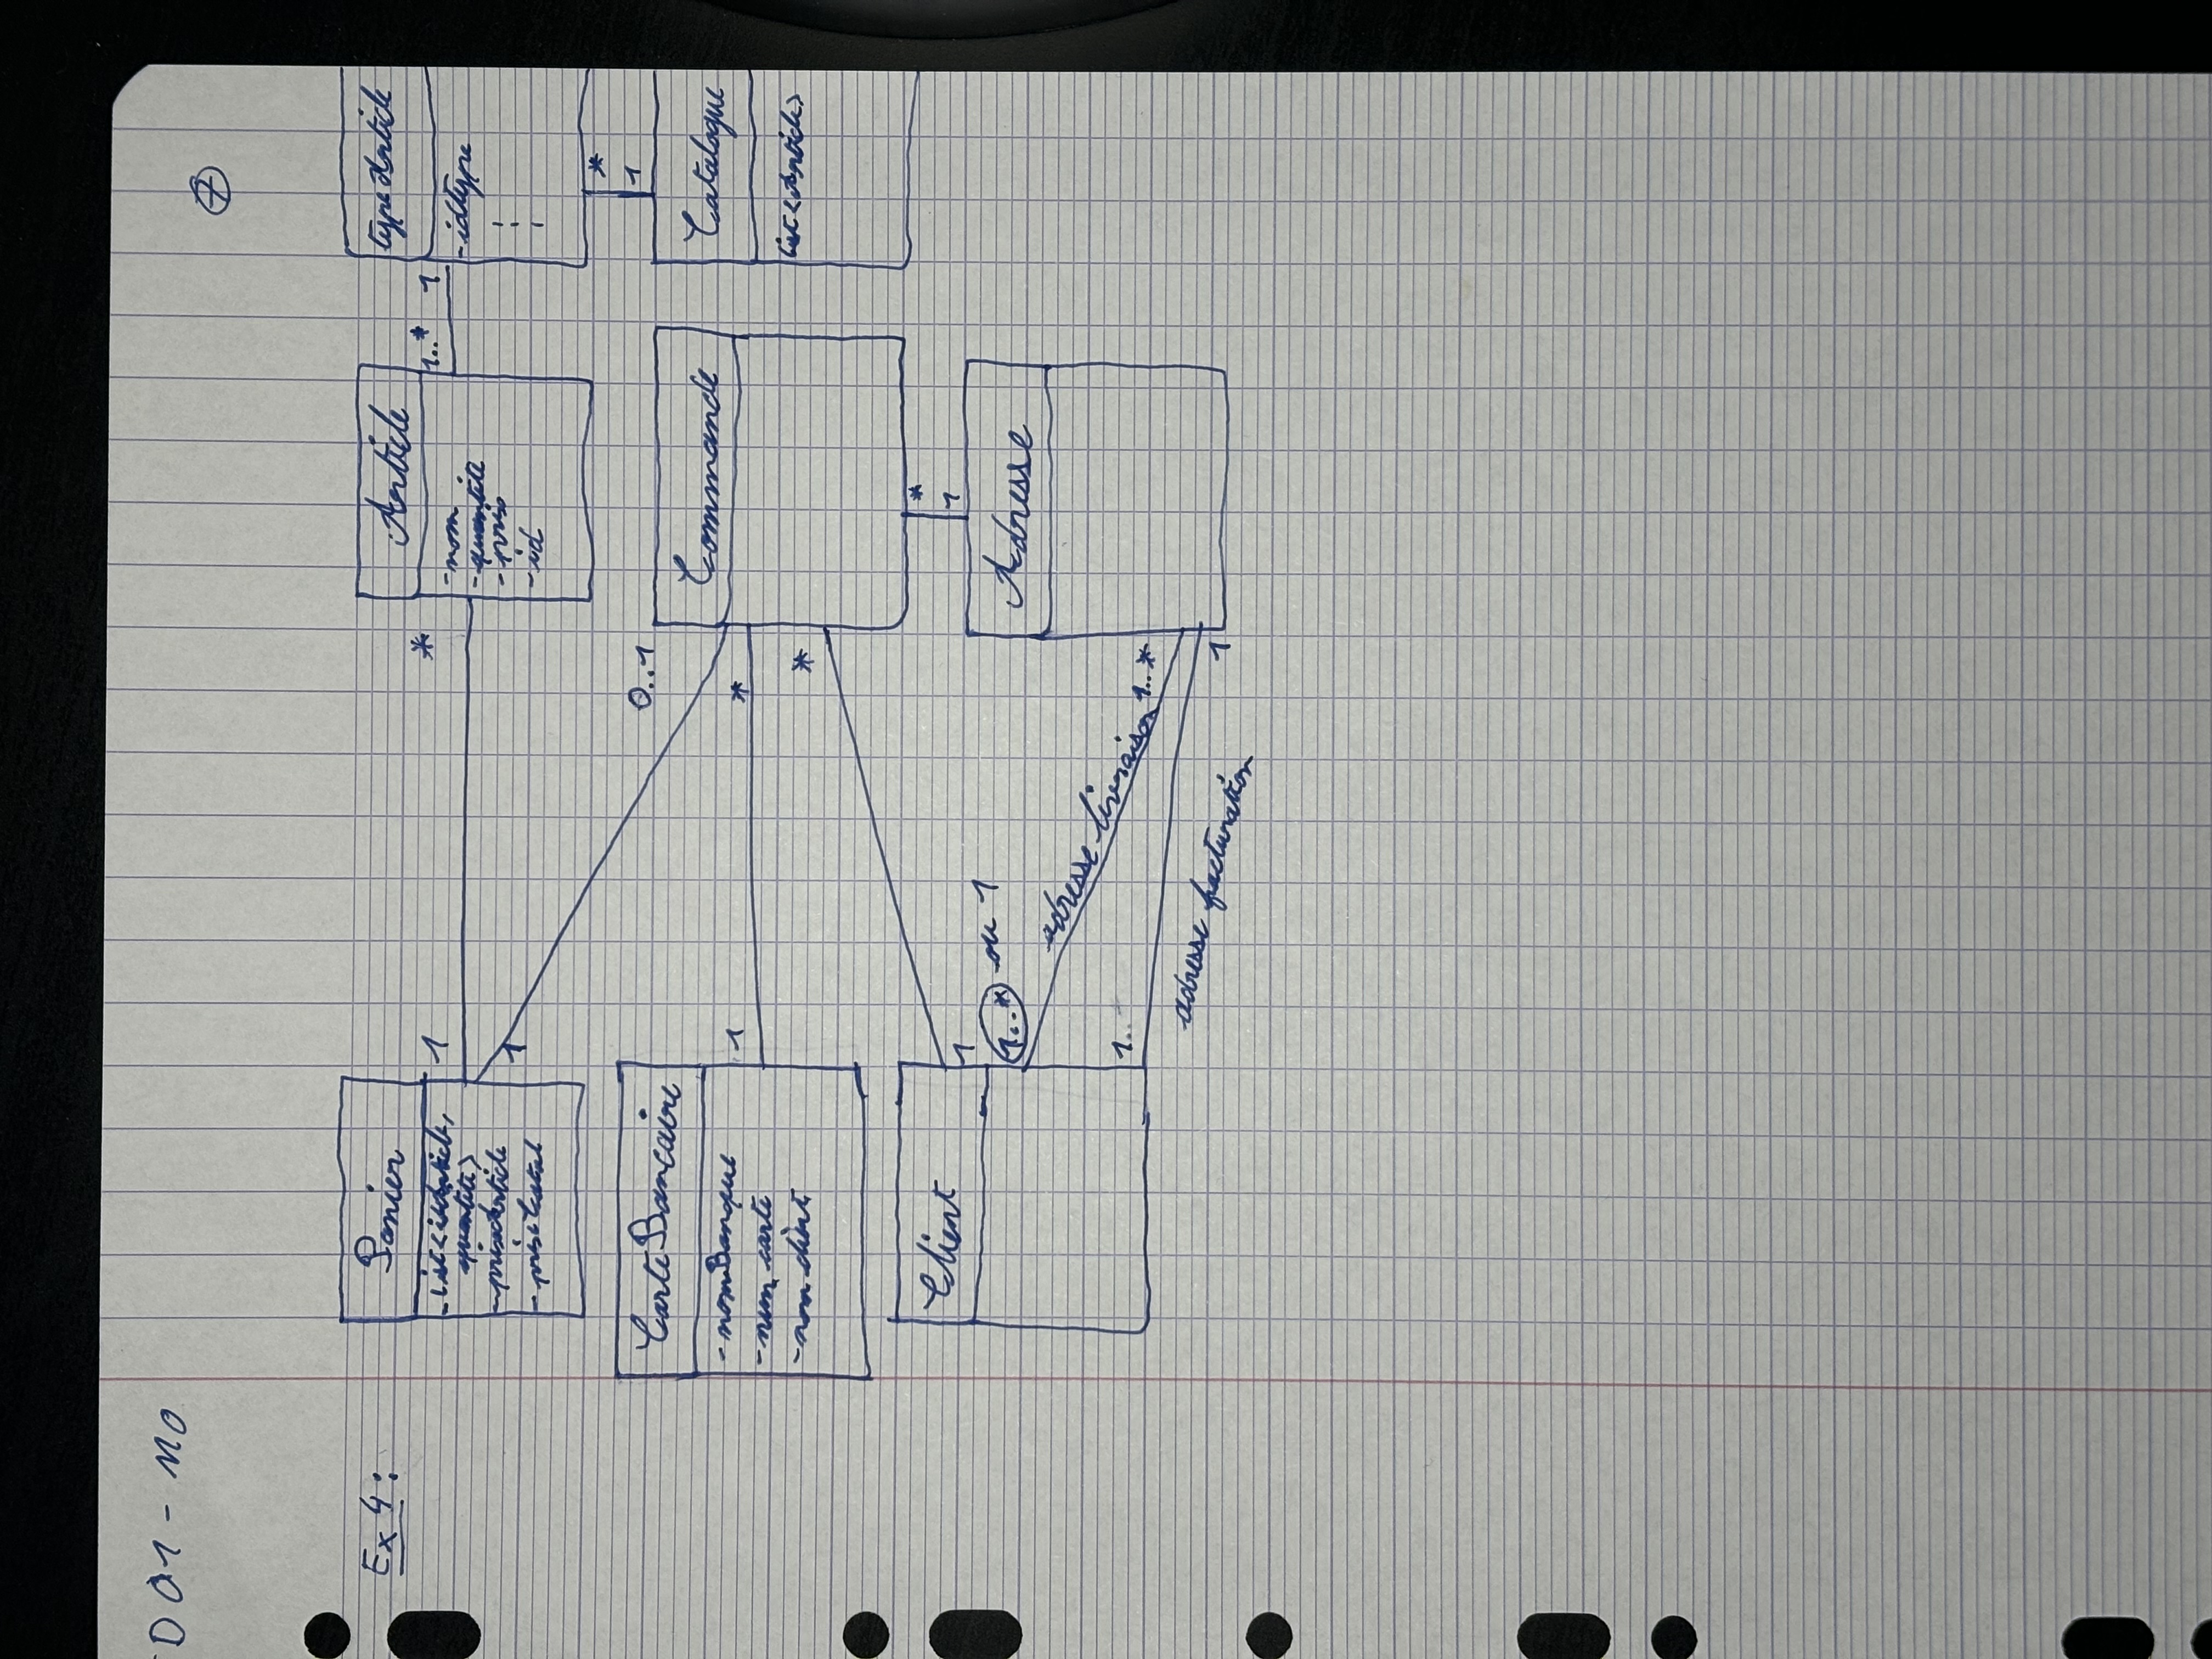 D 01 - MO
7
Ex 4 :
Panier
- List<idArticle,
quantité>
- prixArticle
- prixTotal
1
*
1
Article
- nom
- quantité
- prix
- id
1..*
1
typeArticle
- idtype
*
1
0..1
CarteBancaire
- nomBanque
- num carte
- nom client
1
*
Commande
*
Catalogue
List<Article>
*
1
Client
1
1..* ou 1
adresse livraison
1..*
1..
adresse facturation
1
Adresse